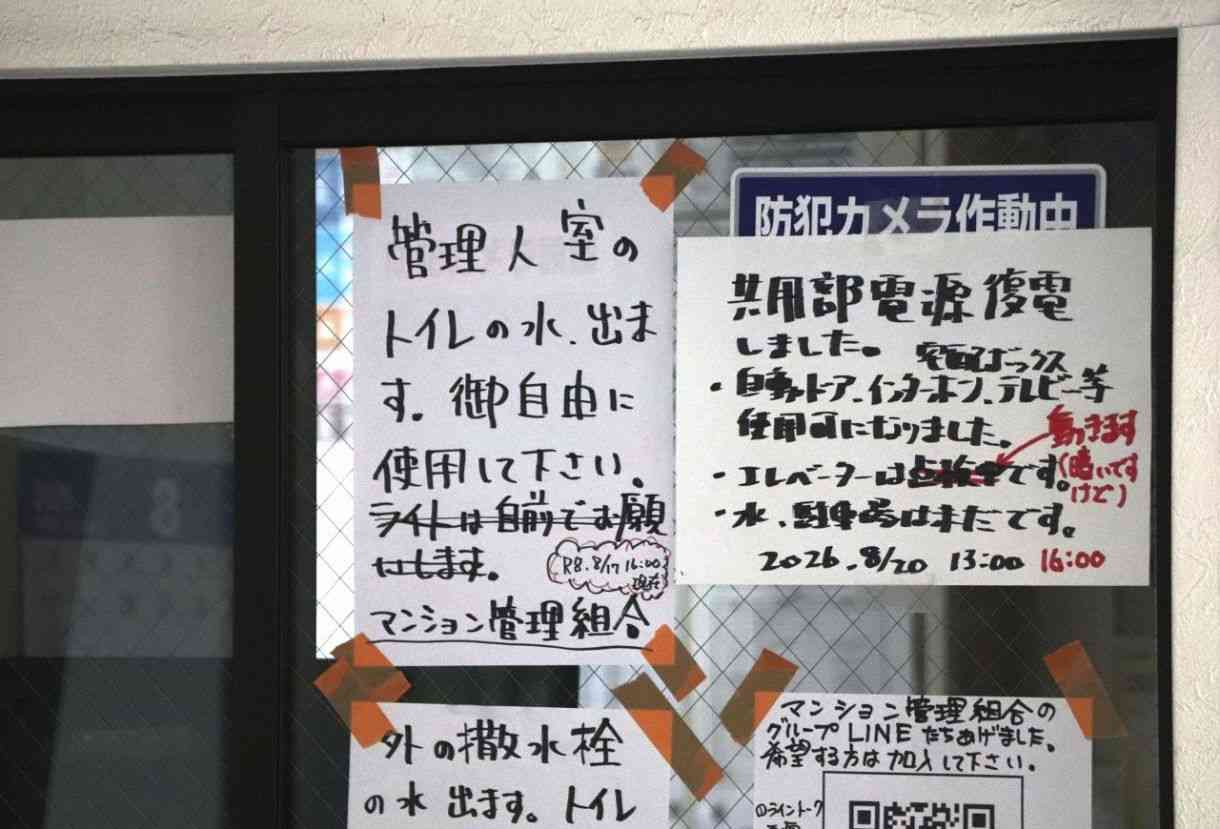 管理人室の
トイレの水、出ま
す。御自由に
使用して下さい。
ライトは自前でお願
いします。
R8.8/17 16:00
現在
マンション管理組合
防犯カメラ作動中
共用部電源復電
しました。
宅配ボックス
・自動ドア、インターホン、テレビ一等
使用可になりました。
動きます
・エレベーターは点検中です。
(暗いです
けど)
・水、駐車場はまだです。
2026.8/20 13:00 16:00
外の撒水栓
の水出ます。トイレ
マンション管理組合の
グループLINEたちあげました。
希望する方は加入して下さい。
のライントーク
8